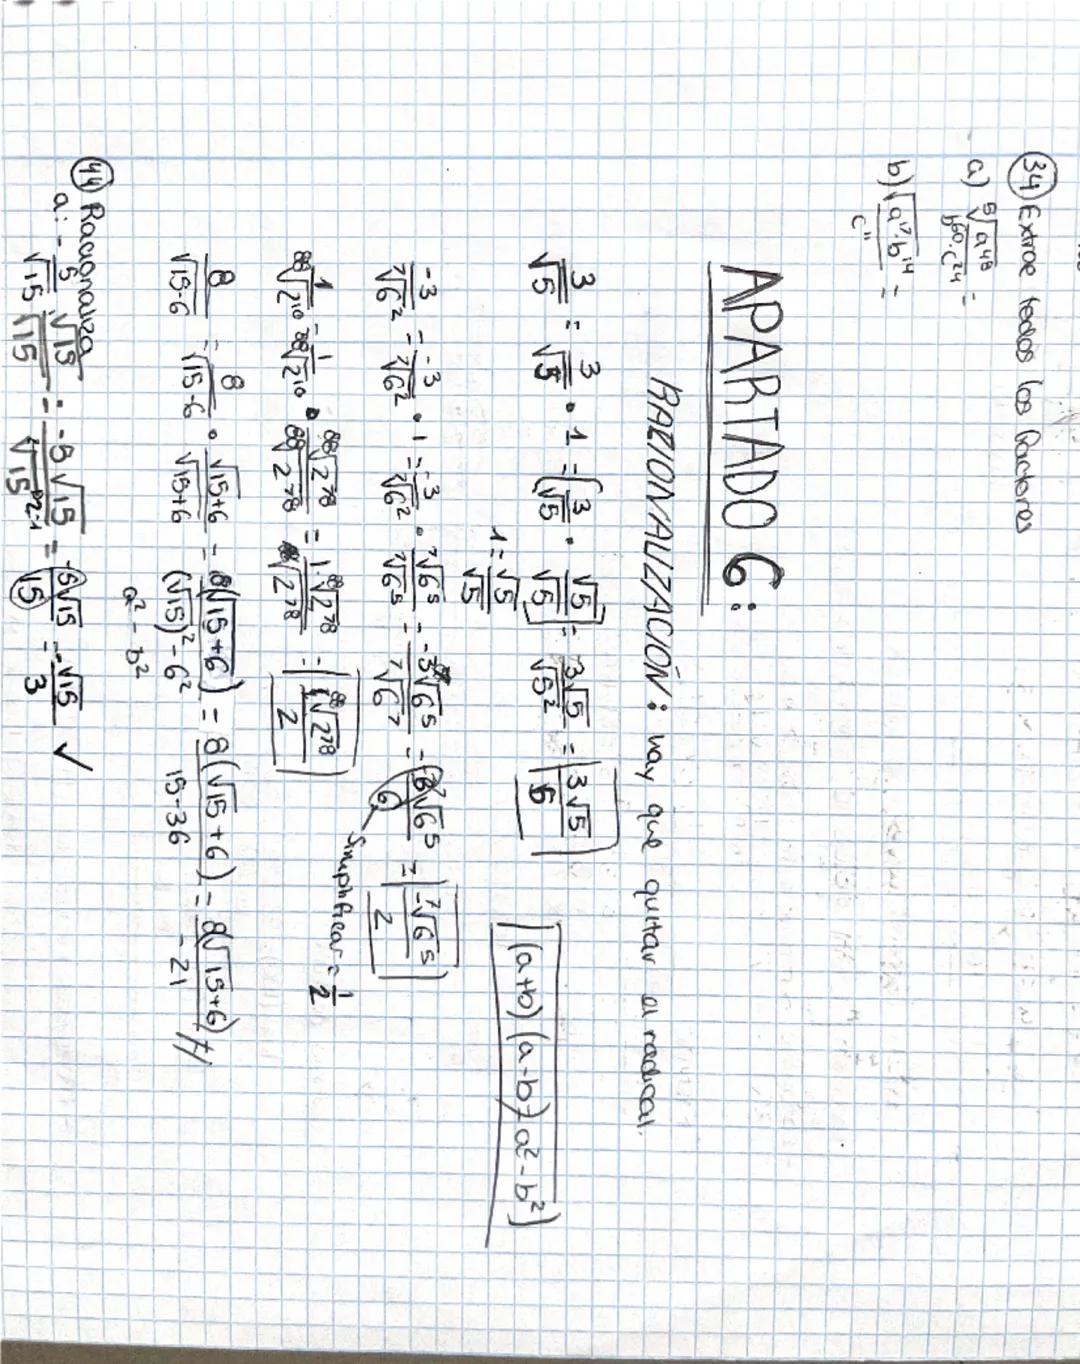 34 Extrae todos los factores
a) ⁵√(a⁴⁸ / b⁶⁰·c²⁴) =
b) √(a¹⁷·b¹⁴ / c¹¹) =
APARTADO 6:
RACIONALIZACIÓN: hay que quitar el radical.
3/√5 = 3/√5 · 1 = (3/√5 · √5/√5 = 3√5/√5² = 3√5/5
1 = √5/√5
(a+b)(a-b)=a²-b²
-3/⁷√6² = -3/⁷√6² · 1 = -3/⁷√6² · ⁷√6⁵/⁷√6⁵ = -3⁷√6⁵/⁷√6⁷ = -3⁷√6⁵/6 = -⁷√6⁵/2
Simplificar = 1/2
1/⁸⁸√2¹⁰ = 1/⁸⁸√2¹⁰ · ⁸⁸√2⁷⁸/⁸⁸√2⁷⁸ = 1⁸⁸√2⁷⁸/⁸⁸√2⁷⁸ = 1⁸⁸√2⁷⁸/2
8/√15-6 = 8/√15-6 · √15+6/√15+6 = 8(√15+6)/(√15)²-6² = 8(√15+6)/15-36 = 8(√15+6)/-21
a² - b²
44 Racionaliza
a: -5/√15 · √15/√15 = -5√15/√15² = -5√15/15 = -√15/3 ✓